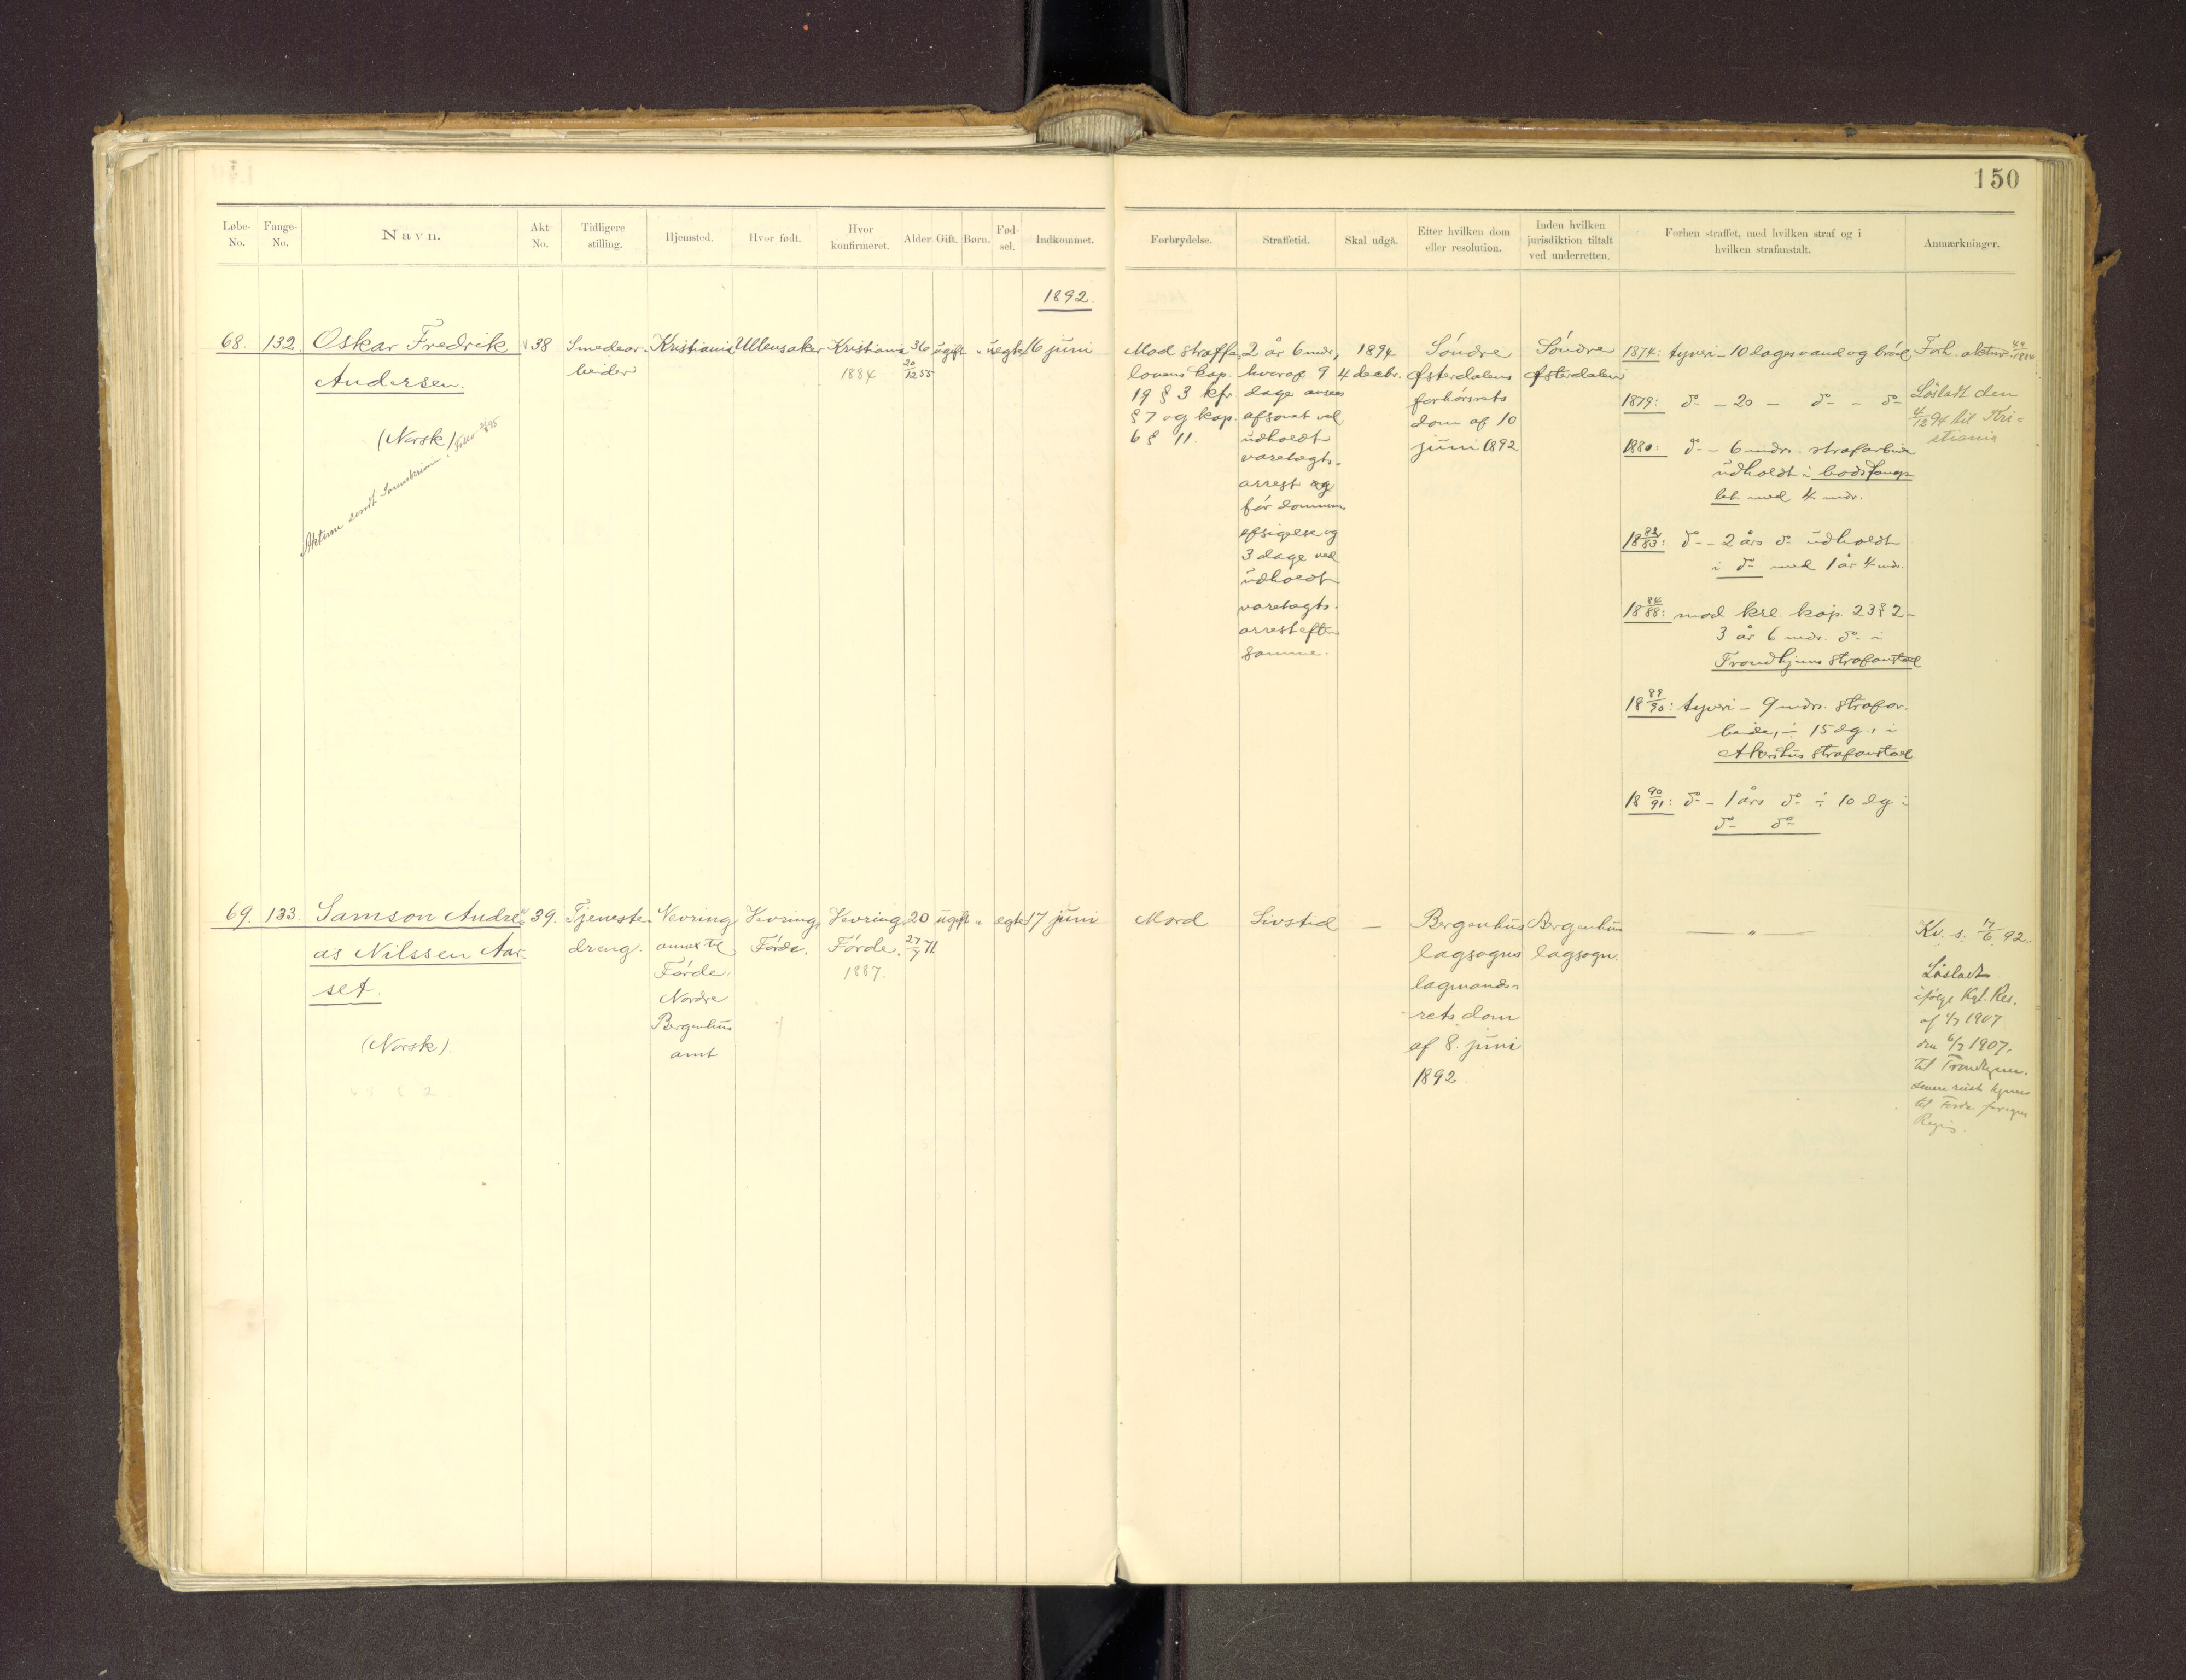 150
Løbe-No.
Fange-No.
Navn.
Akt No.
Tidligere stilling.
Hjemsted.
Hvor født.
Hvor konfirmeret.
Alder
Gift.
Børn.
Fød-sel.
Indkommet.
Forbrydelse.
Straffetid.
Skal udgå.
Efter hvilken dom eller resolution.
Inden hvilken jurisdiktion tiltalt ved underretten.
Forhen straffet, med hvilken straf og i hvilken strafanstalt.
Anmærkninger.
1892.
68.
132.
Oskar Fredrik
Andersen.
(Norsk)
Akterne sendt
38
Smedear-
beider
Kristiania
Ullensaker
Kristiania
1884
36
20/12 55
ugift
"
uegte
16 juni
Mod straffe
lovens kap.
19 § 3 kfr.
§ 7 og kap.
6 § 11.
2 år 6 mdr,
hvoraf 9
dage ansees
afsonet ved
udholdt
varetægts-
arrest
før dommens
afsigelse og
3 dage ved
udholdt
varetægts-
arrest efter
samme.
1894
4 decbr.
Søndre
Østerdalens
forhørsrets
dom af 10
juni 1892
Søndre
Østerdalen
1874: tyveri - 10 dages vand og brød,
1879: do - 20 - do - do
1880: do - 6 mdrs. strafarbeide
udholdt i bodsfæng-
let med 4 mdr.
18 82/83: do - 2 års do udholdt
i do med 1 år 4 mdr.
18 84/88: mod krl. kap. 23 § 2 -
3 år 6 mdr. do i
Trondhjems strafanstalt
18 89/90: tyveri - 9 mdrs. strafar-
beide, ÷ 15 dg., i
Akershus strafanstalt
18 90/91: do - 1 års do ÷ 10 dg i
do do
Forh. akter
Løsladt den
4/12 94 til Kri-
stiania
69.
133.
Samson Andre-
as Nilssen Aar-
set.
(Norsk).
39.
Tjeneste-
dreng.
Vevring
annex til
Førde,
Nordre
Bergenhus
amt
Vevring,
Førde.
Vevring,
Førde.
1887.
20
27/7 71
ugift
"
egte
17 juni
Mord
Livstid
—
Bergenhus
lagsogns
lagmands-
rets dom
af 8. juni
1892.
Bergenhus
lagsogn.
— " —
Kv. s. 17/6 92.
Løsladt
ifølge Kgl. Res.
af 4/7 1907
den 6/7 1907.
til Trondhjem.
senere reist hjem
til Førde